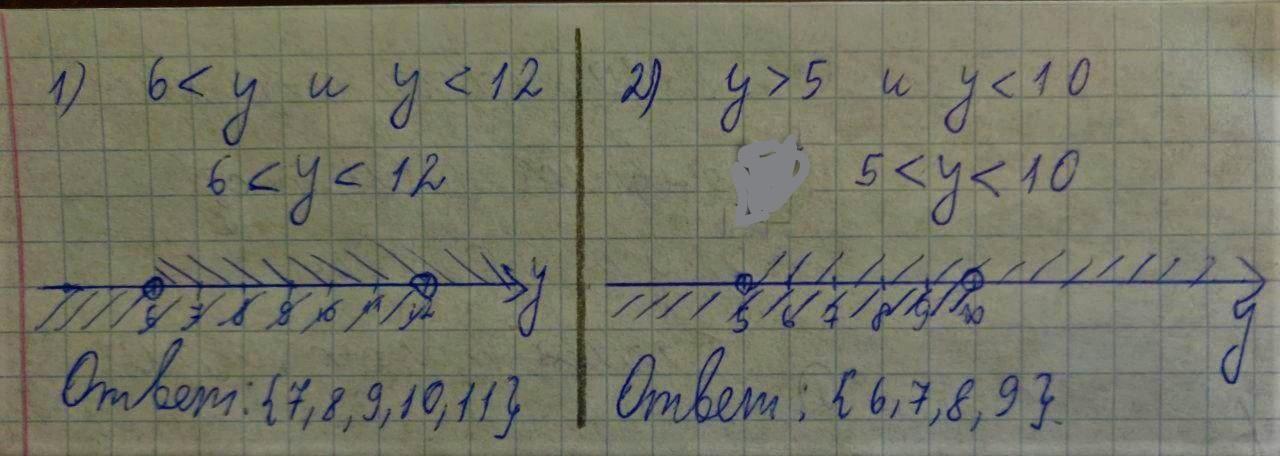 1) 6 < y и y < 12
6 < y < 12
6 7 8 9 10 11 12 y
Ответ: {7, 8, 9, 10, 11}
2) y > 5 и y < 10
5 < y < 10
5 6 7 8 9 10 y
Ответ: {6, 7, 8, 9}